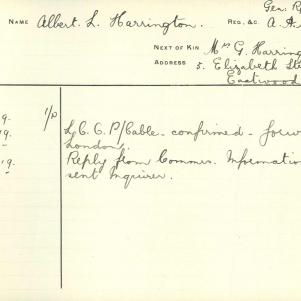 Gen: R
NAME Albert. L. Harrington. REG., &C. A.
NEXT OF KIN Mrs G. Harring
ADDRESS 5. Elizabeth St
Eastwood
9. 1/0
19. L.C.C. P/Cable - confirmed - forw
London.
19. Reply from Commrs. Informatio
sent Inquirer.